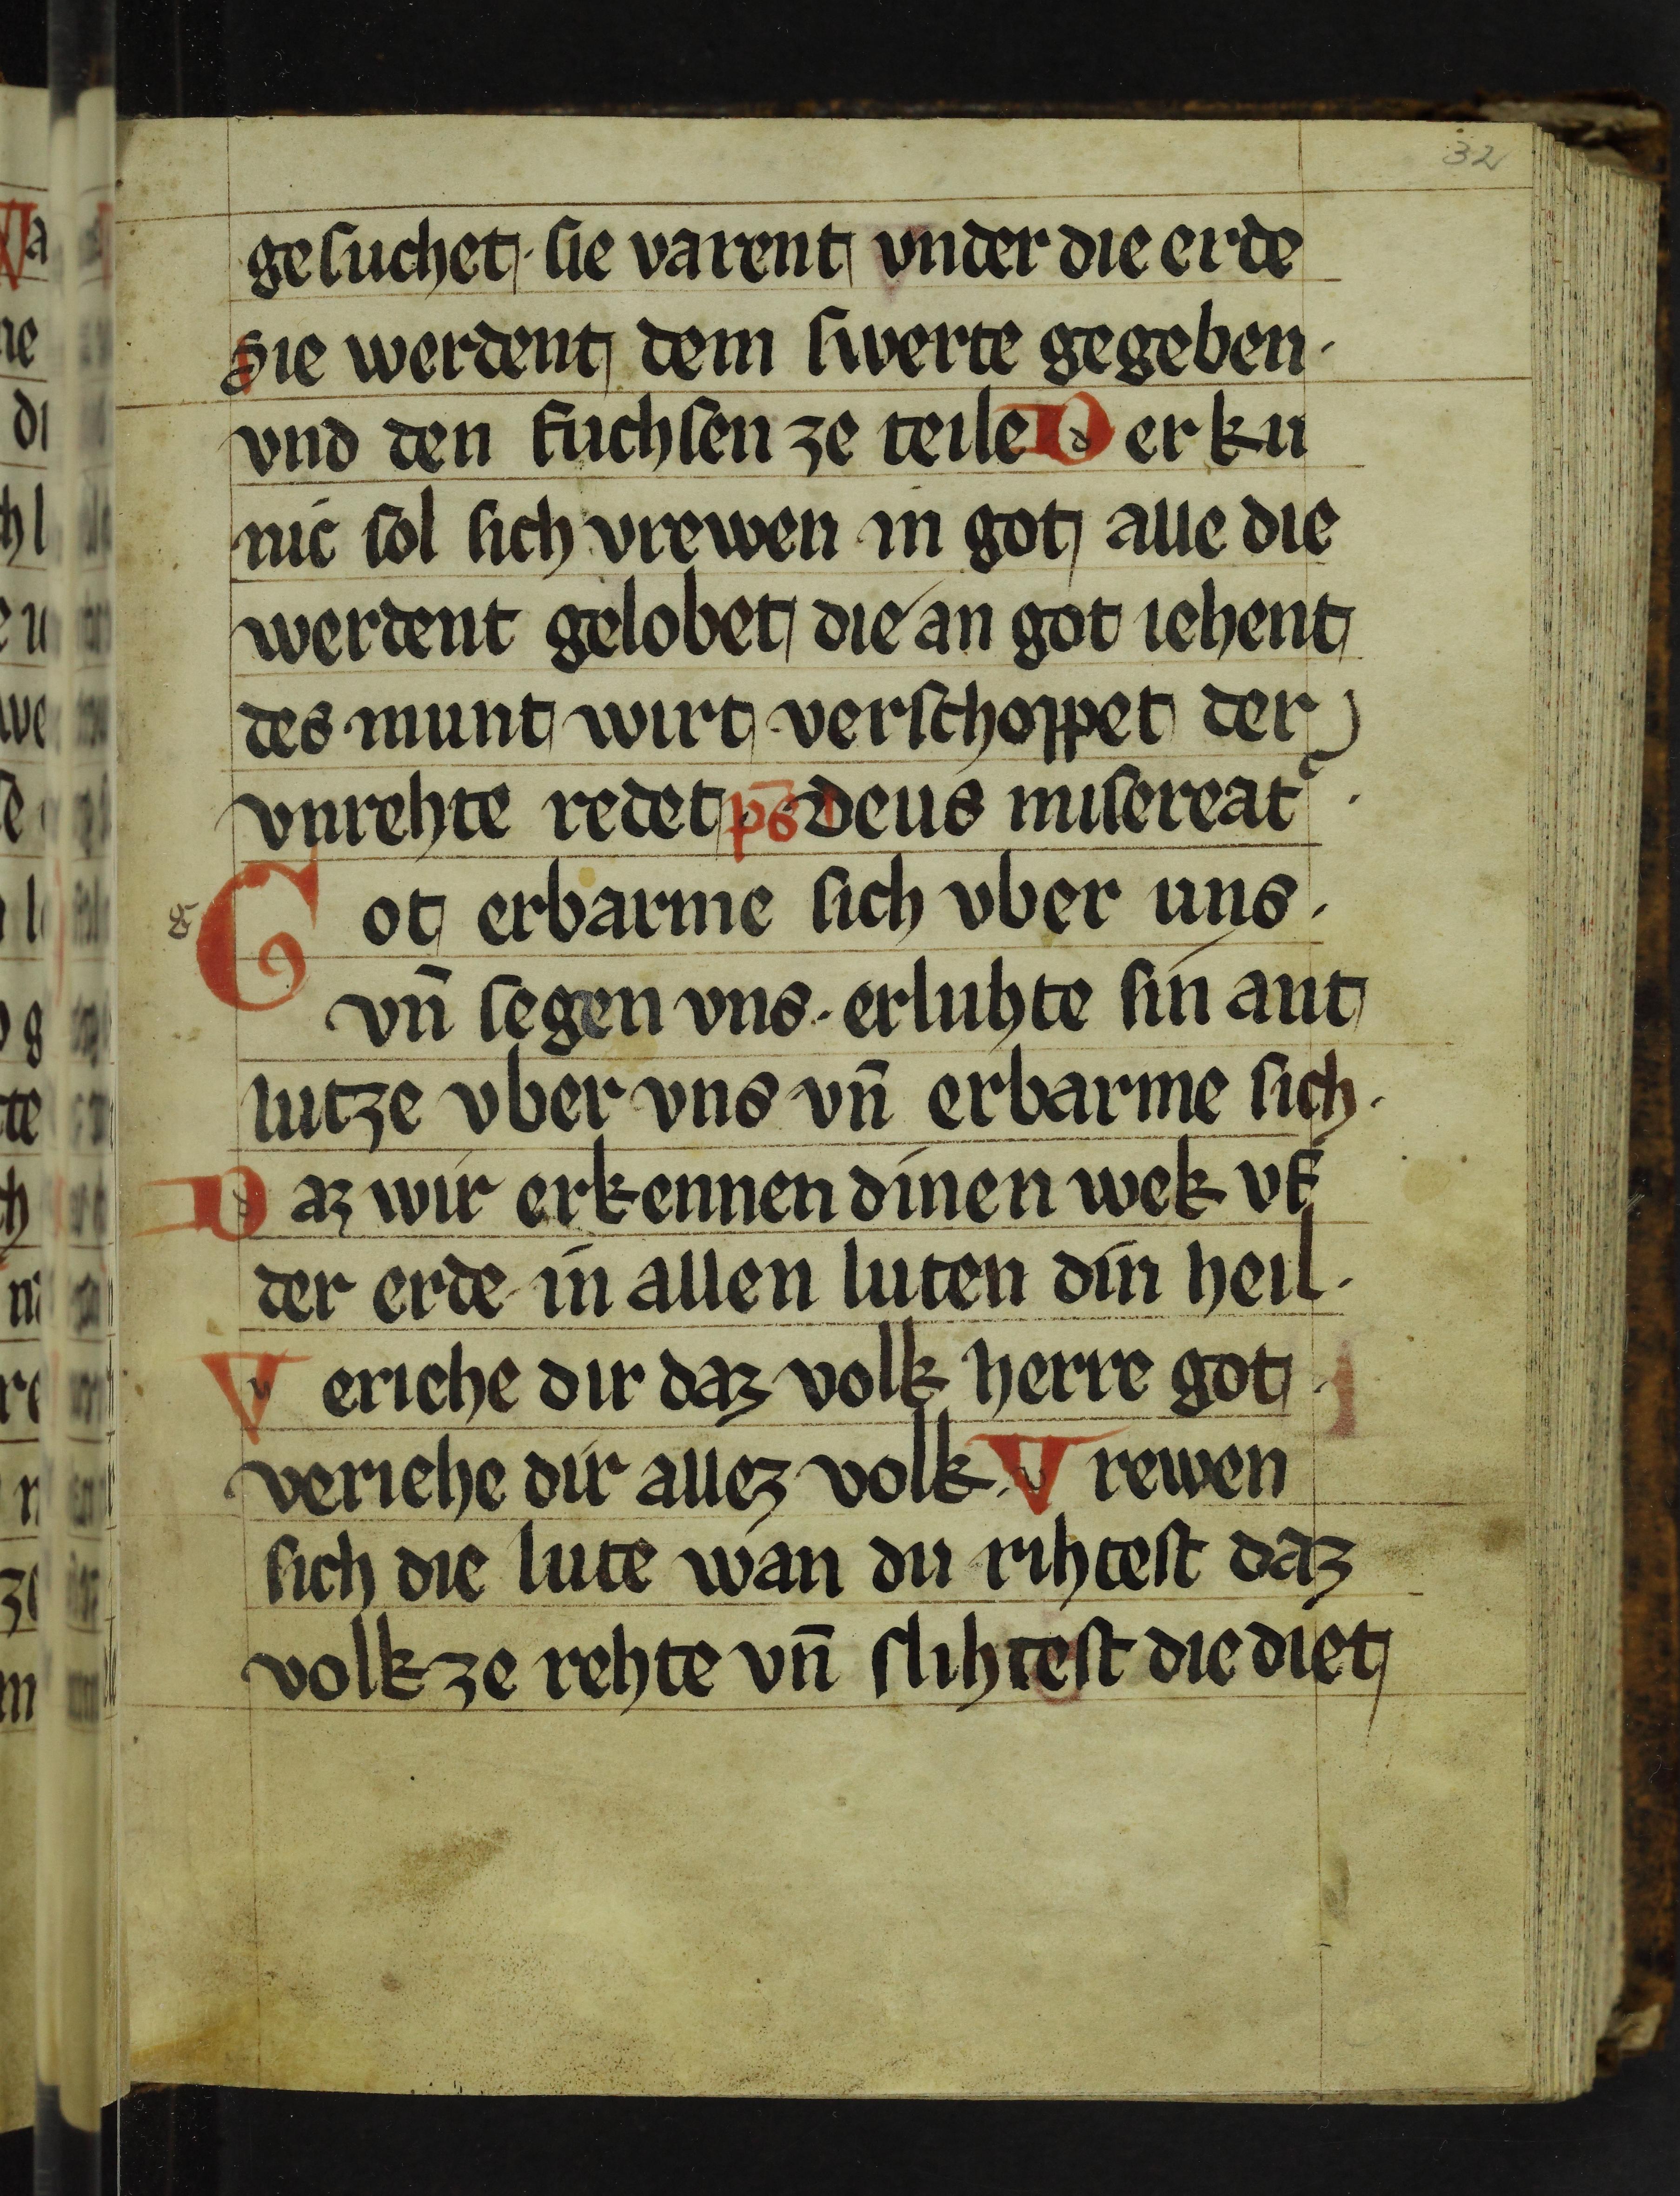 32
geſuchet · ſie varent vnder die erde
Sie werdent dem ſwerte gegeben ·
vnd den fuchſen ze teile Der ku
nic ſol ſich vrewen in got alle die
werdent gelobet die an got iehent
des munt wirt verſchoppet der
vnrehte redet · ps̄ Deus miſereat᷑ ·
Got erbarme ſich vber uns ·
vn̄ ſegen vns · erluhte ſin ant
lutze vber vns vn̄ erbarme ſich ·
Daz wir erkennen dinen wek vf
der erde in allen luten din heil ·
Veriehe dir daz volk herre got ·
veriehe dir allez volk · Vrewen
ſich die lute wan du rihteſt daz
volk ze rehte vn̄ ſlihteſt die diet